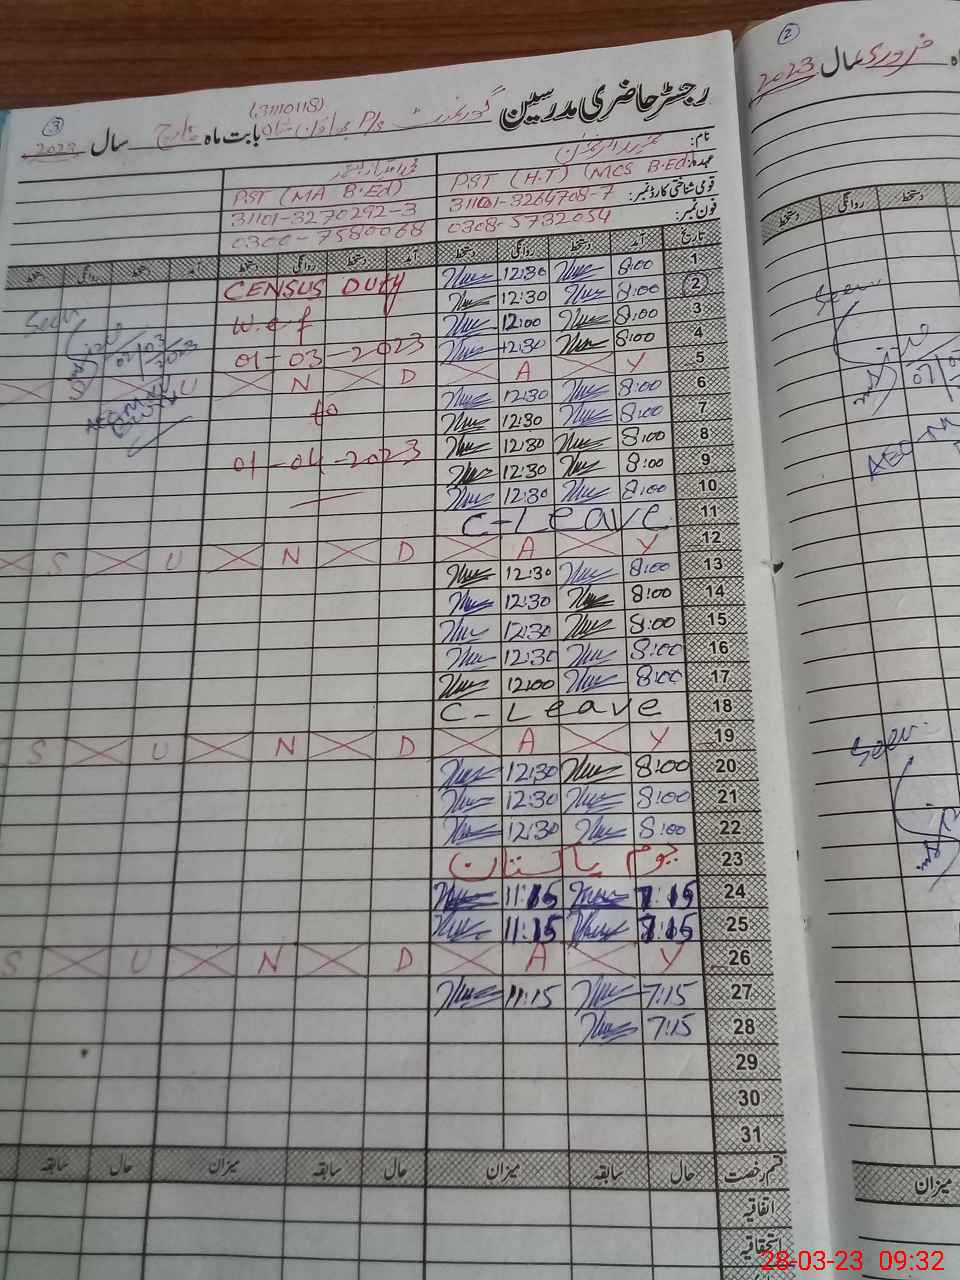 رجسٹر حاضری مدرسین
(31110118)
گورنمنٹ P/S
بابت ماہ مارچ سال 2023
3
نام:
عہدہ: PST (H.T) (MCS B.Ed) PST (MA B.Ed)
قومی شناختی کارڈ نمبر: 31101-3264708-7 31101-3270292-3
فون نمبر: 0308-5732054 0300-7580068
تاریخ آمد دستخط روانگی دستخط آمد دستخط روانگی دستخط آمد دستخط روانگی دستخط
1 8:00 12:30 CENSUS DUTY
2 8:00 12:30
3 8:00 12:00 w.e.f
4 8:00 12:30 01-03-2023
5 S U N D A Y
6 8:00 12:30 to
7 8:00 12:30
8 8:00 12:30 01-04-2023
9 8:00 12:30
10 8:00 12:30
11 C-Leave
12 S U N D A Y
13 8:00 12:30
14 8:00 12:30
15 8:00 12:30
16 8:00 12:30
17 8:00 12:00
18 C-Leave
19 S U N D A Y
20 8:00 12:30
21 8:00 12:30
22 8:00 12:30
23 یوم پاکستان
24 7:15 11:15
25 7:15 11:15
26 S U N D A Y
27 7:15 11:15
28 7:15
29
30
31
قسم رخصت حال سابقہ میزان حال سابقہ میزان حال سابقہ
اتفاقیہ
استحقاقیہ
Seen
07/03
2023
AEO
2
ماہ فروری سال 2023
دستخط روانگی دستخط
Seen
07/0
AEO
Seen
میزان
28-03-23 09:32